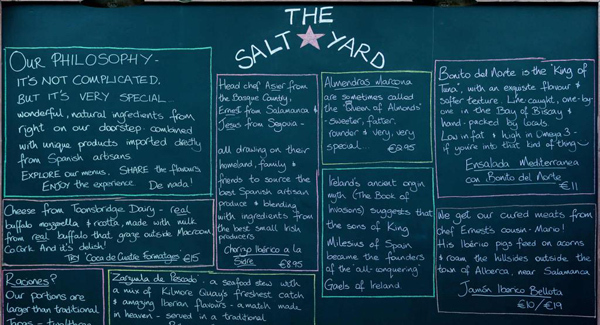 THE
SALT YARD
OUR PHILOSOPHY -
IT'S NOT COMPLICATED.
BUT IT'S VERY SPECIAL -
wonderful, natural ingredients from
right on our doorstep combined
with unique products imported directly
from Spanish artisans
EXPLORE our menus. SHARE the flavours
ENJOY the experience De nada!
Cheese from Toonsbridge Dairy - real
buffalo mozzarella & ricotta, made with milk
from real buffalo that graze outside Macroom,
Co.Cork. And it's delish!
TRY 'Coca de Cuatre formatges €15
Raciones?
Our portions are
larger than traditional
Zarzuela de Pescado - a seafood stew with
a mix of Kilmore Quay's freshest catch
& amazing Iberian flavours - a match made
in heaven - served in a traditional
Head chef Asier from
the Basque Country,
Ernest from Salamanca &
Jesus from Segovia -
all drawing on their
homeland, family &
friends to source the
best Spanish artisan
produce & blending
with ingredients from
the best small Irish
producers
Chorizo Ibérico a la
Sidre €8.95
Almendras Marcona
are sometimes called
the 'Queen of Almonds'
- sweeter, flatter,
rounder & very, very
special... €2.95
Ireland's ancient origin
myth (The Book of
Invasions) suggests that
the sons of King
Milesius of Spain
became the founders
of the 'all-conquering'
Gaels of Ireland
Bonito del Norte is the 'King of
Tuna', with an exquisite flavour &
softer texture. Line caught, one-by-
one in the Bay of Biscay &
hand-packed by locals
Low in fat & high in Omega 3 -
if you're into that kind of thing~
Ensalada Mediterranea
con Bonito del Norte
€11
We get our cured meats from
chef Ernest's cousin - Mario!
His Ibérico pigs feed on acorns
& roam the hillsides outside the
town of Alberca, near Salamanca
Jamón Iberico Bellota
€10/€19